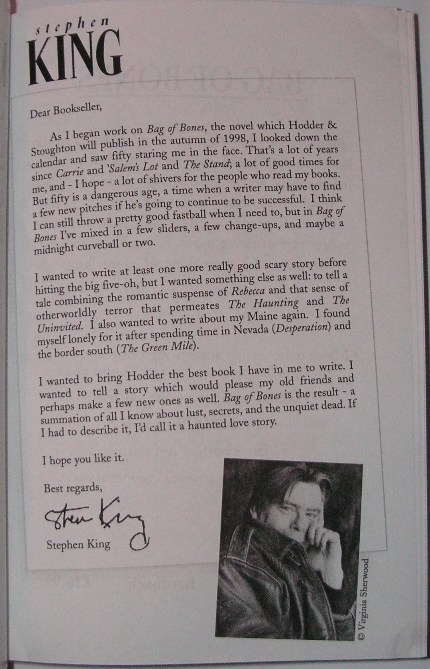 stephen
KING
Dear Bookseller,
As I began work on Bag of Bones, the novel which Hodder &
Stoughton will publish in the autumn of 1998, I looked down the
calendar and saw fifty staring me in the face. That's a lot of years
since Carrie and 'Salem's Lot and The Stand; a lot of good times for
me, and - I hope - a lot of shivers for the people who read my books.
But fifty is a dangerous age, a time when a writer may have to find
a few new pitches if he's going to continue to be successful. I think
I can still throw a pretty good fastball when I need to, but in Bag of
Bones I've mixed in a few sliders, a few change-ups, and maybe a
midnight curveball or two.
I wanted to write at least one more really good scary story before
hitting the big five-oh, but I wanted something else as well: to tell a
tale combining the romantic suspense of Rebecca and that sense of
otherworldly terror that permeates The Haunting and The
Uninvited. I also wanted to write about my Maine again. I found
myself lonely for it after spending time in Nevada (Desperation) and
the border south (The Green Mile).
I wanted to bring Hodder the best book I have in me to write. I
wanted to tell a story which would please my old friends and
perhaps make a few new ones as well. Bag of Bones is the result - a
summation of all I know about lust, secrets, and the unquiet dead. If
I had to describe it, I'd call it a haunted love story.
I hope you like it.
Best regards,
Stephen King
Stephen King
© Virginia Sherwood